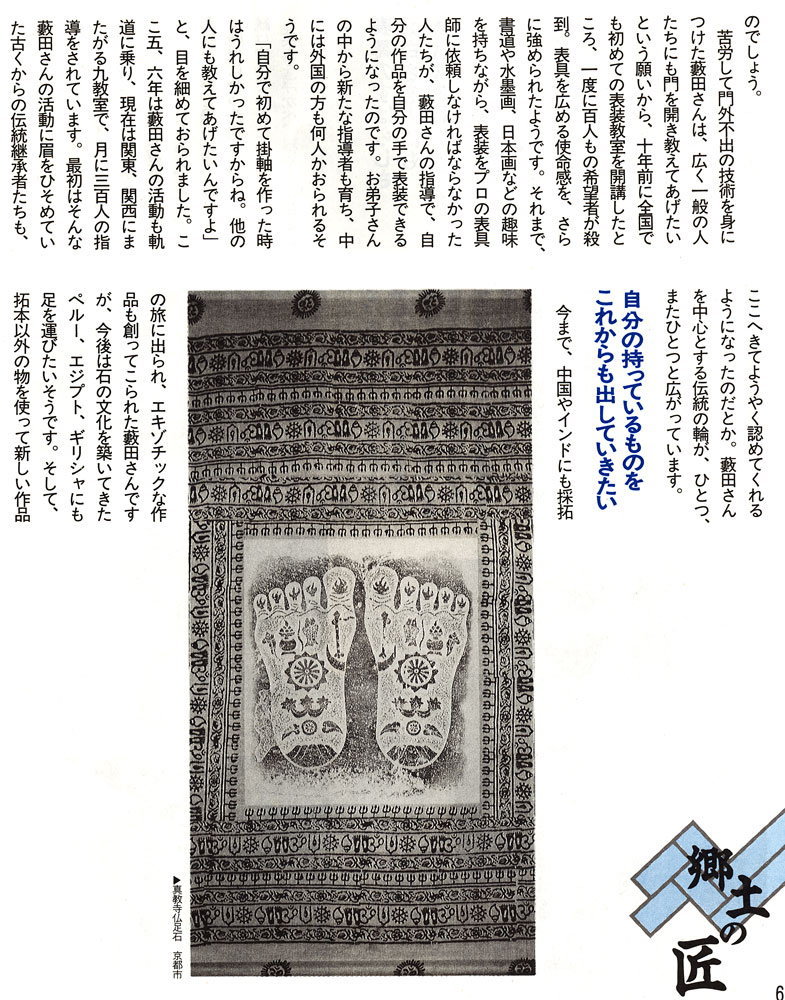 のでしょう。
　苦労して門外不出の技術を身に
つけた藪田さんは、広く一般の人
たちにも門を開き教えてあげたい
という願いから、十年前に全国で
も初めての表装教室を開講したと
ころ、一度に百人もの希望者が殺
到。表具を広める使命感を、さら
に強められたようです。それまで、
書道や水墨画、日本画などの趣味
を持ちながら、表装をプロの表具
師に依頼しなければならなかった
人たちが、藪田さんの指導で、自
分の作品を自分の手で表装できる
ようになったのです。お弟子さん
の中から新たな指導者も育ち、中
には外国の方も何人かおられるそ
うです。
　「自分で初めて掛軸を作った時
はうれしかったですからね。他の
人にも教えてあげたいんですよ」
と、目を細めておられました。こ
こ五、六年は藪田さんの活動も軌
道に乗り、現在は関東、関西にま
たがる九教室で、月に三百人の指
導をされています。最初はそんな
藪田さんの活動に眉をひそめてい
た古くからの伝統継承者たちも、
ここへきてようやく認めてくれる
ようになったのだとか。藪田さん
を中心とする伝統の輪が、ひとつ、
またひとつと広がっています。
自分の持っているものを
これからも出していきたい
　今まで、中国やインドにも採拓
の旅に出られ、エキゾチックな作
品も創ってこられた藪田さんです
が、今後は石の文化を築いてきた
ペルー、エジプト、ギリシャにも
足を運びたいそうです。そして、
拓本以外の物を使って新しい作品
▶真教寺仏足石　京都市
郷土の匠
6